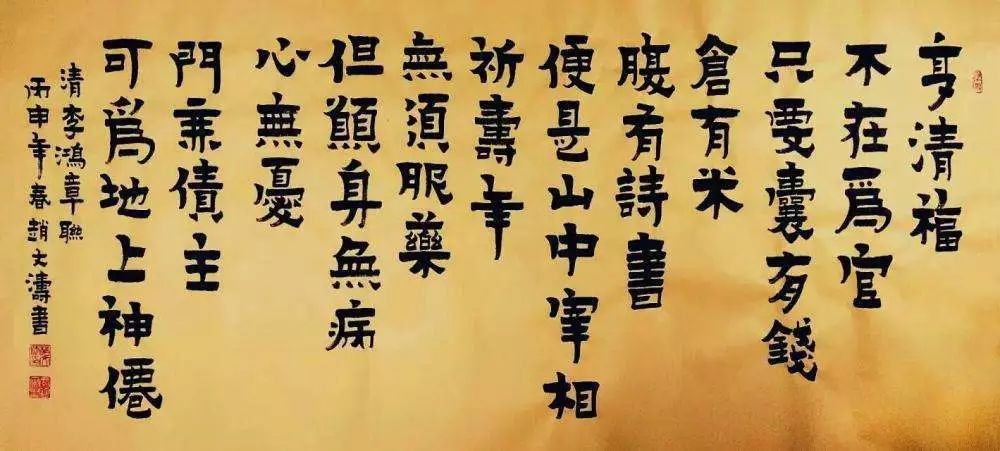 享清福
不在爲官
只要囊有錢
倉有米
腹有詩書
便是山中宰相
祈壽年
無須服藥
但願身無病
心無憂
門無債主
可爲地上神僊
清李鴻章聯
丙申年春趙文濤書